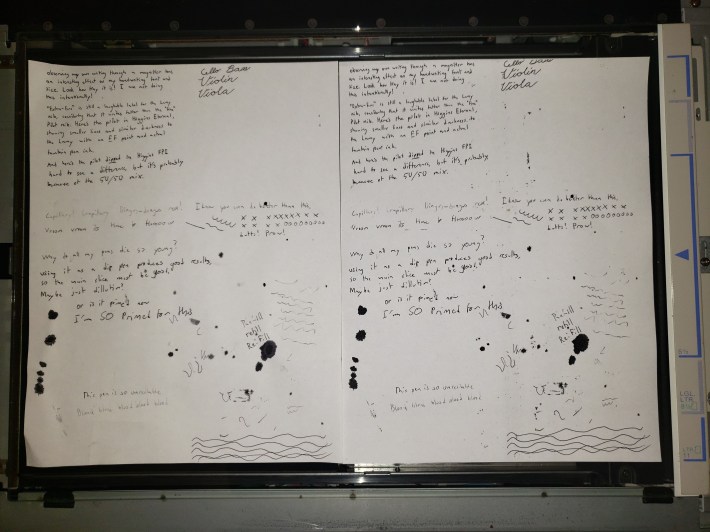 observing my own writing through a magnifier has
an interesting effect on my handwriting font and
size. Look how tiny it is! I am not doing
this intentionally!
"Extra-fine" is still a laughable label for the Lamy
nib, considering that it writes fatter than the "fine"
Pilot nib. Here's the pilot in Higgins Eternal,
showing smaller lines and similar darkness to
the Lamy with an EF point and actual
fountain pen ink.
And here's the pilot dipped to Higgins FPI
hard to see a difference, but it's probably
because of the 50/50 mix.
Cello Bass
Violin
Viola
I know you can do better than this,
Vroom vroom
x x xxxxxxx
butts! Prawl!
Why do all my pens die so young?
using it as a dip pen produces good results,
so the main choice must be good.
Maybe just dillution?
or is it primed now
I'm SO Primed for this
Refill
refill
Re-Fill
This pen is so unreliable
Blood blood blood
observing my own writing through a magnifier has
an interesting effect on my handwriting font and
size. Look how tiny it is! I am not doing
this intentionally!
"Extra-fine" is still a laughable label for the Lamy
nib, considering that it writes fatter than the "fine"
Pilot nib. Here's the pilot in Higgins Eternal,
showing smaller lines and similar darkness to
the Lamy with an EF point and actual
fountain pen ink.
And here's the pilot dipped to Higgins FPI
hard to see a difference, but it's probably
because of the 50/50 mix.
Cello Bass
Violin
Viola
I know you can do better than this,
Vroom vroom
x x xxxxxxx
butts! Prawl!
Why do all my pens die so young?
using it as a dip pen produces good results,
so the main choice must be good.
Maybe just dillution?
or is it primed now
I'm SO Primed for this
Refill
refill
Re-Fill
This pen is so unreliable
Blood blood blood
LGL
LTR